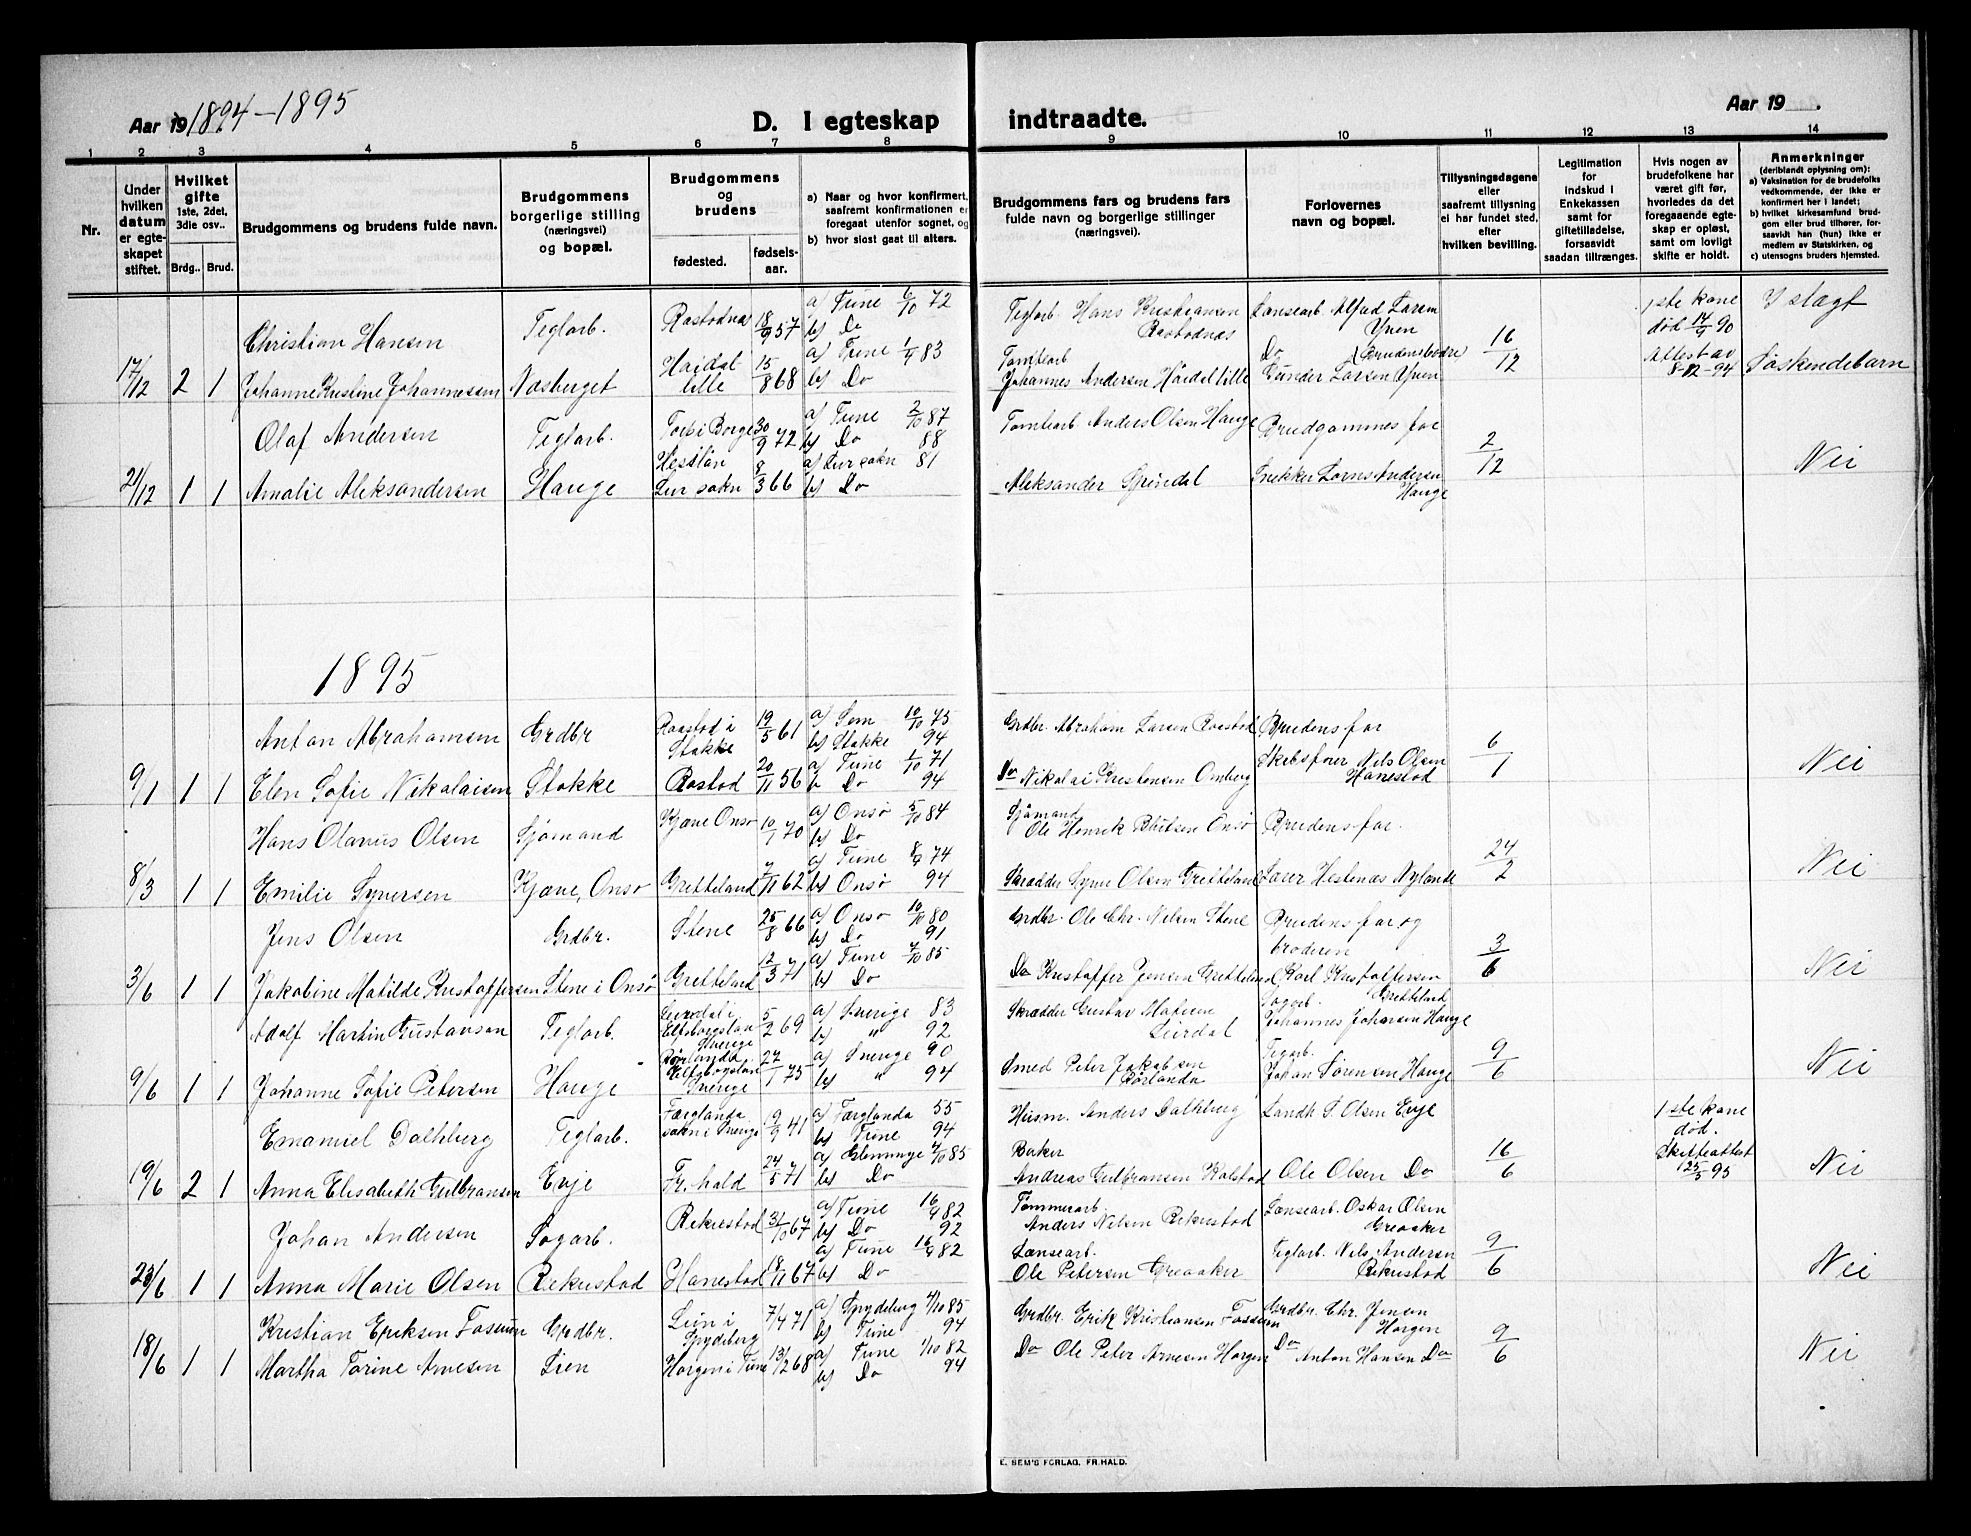 Aar 19 1894–1895
D. I egteskap indtraadte.
Aar 19 .
1 2 3 4 5 6 7 8 9 10 11 12 13 14
Nr.
Under hvilken datum er egteskapet stiftet.
Hvilket gifte 1ste, 2det, 3die osv..
Brdg.. Brud.
Brudgommens og brudens fulde navn.
Brudgommens borgerlige stilling (næringsvei) og bopæl.
Brudgommens og brudens
fødested. fødselsaar.
a) Naar og hvor konfirmert, saafremt konfirmationen er foregaat utenfor sognet, og
b) hvor sidst gaat til alters.
Brudgommens fars og brudens fars fulde navn og borgerlige stillinger (næringsvei).
Forlovernes navn og bopæl.
Tillysningsdagene eller saafremt tillysning ei har fundet sted, efter hvilken bevilling.
Legitimation for indskud i Enkekassen samt for giftetilladelse, forsaavidt saadan tiltrænges.
Hvis nogen av brudefolkene har været gift før, hvorledes da det foregaaende egteskap er opløst, samt om lovligt skifte er holdt.
Anmerkninger (deriblandt oplysning om):
a) Vaksination for de brudefolks vedkommende, der ikke er konfirmert i landet;
b) hvilket kirkesamfund brudgom eller brud tilhører, forsaavidt han (hun) ikke er medlem av Statskirken, og
c) utensogns bruders hjemsted.
Christian Hansen Teglarb. Rostodnes 18/9 57 a) Tune 6/10 72 b) Do Teglarb. Hans Kristiansen Rostodnes Lansearb. Alfred Larsen Yven 16/12 1ste kone død 17/9 90 I slegt
17/12 2 1 Johanne Kristine Johannessen Nasberget Haidal lille 15/8 68 a) Tune 1/4 83 b) Do Tomtearb Johannes Andersen Haidal lille Do Gunder Larsen Yven Attest av 8-12-94 Søskendebarn
Olaf Andersen Teglarb. Torp i Borge 30/9 72 a) Tune 2/10 87 b) Do 88 Tomtearb Anders Olsen Hauge Brudgommens far 2/12 Nei
21/12 1 1 Amalie Aleksandersen Hauge sokn 8/3 66 a) sokn 81 b) Do Aleksander Snekker Andersen Hauge
1895
Anton Abrahamsen Grdbr Raastod i Stokke 19/5 61 a) Sem 10/10 75 b) Stokke 94 Grdbr. Abraham Larsen Raastod Brudens far 6/1 Nei
9/1 1 1 Elen Sofie Nikolaisen Stokke Rostod 20/11 56 a) Tune 1/10 71 b Do 94 Do Nikolai Kristensen Omberg Skibsfører Nils Olsen Hanestod
Hans Olavus Olsen Sjømand Kjæne Onsø 10/1 70 a) Onsø 5/10 84 b) Do Sjømand Ole Henrik Onsø Brudens far. 24/2 Nei
8/3 1 1 Emilie Syversen Kjæne, Onsø Gretteland 7/11 62 a) Tune 8/9 74 b) Onsø 94 Skrædder Syver Olsen Gretteland Lærer Hestenes Nylende
Jens Olsen Grdbr. Stene 25/8 66 a) Onsø 10/10 80 b) Do 91 Grdbr. Ole Chr. Nilsen Stene Brudens far og broderen 3/6 Nei
3/6 1 1 Jakobine Matilde Kristoffersen Stene i Onsø Gretteland 12/3 71 a) Tune 4/10 85 b) Do Do Kristoffer Jensen Gretteland Karl Kristoffersen Gretteland
Adolf Martin Gustavsen Teglarb. Elfsborgslän Sverige 5/2 69 a) Sverige 83 b) " 92 Skrædder Gustav Leirdal Sagarb. Johannes Johansen Hauge 9/6 Nei
9/6 1 1 Johanne Sofie Petersen Hauge Rørlanda Elfsborgslän Sverige 27/1 75 a) Sverige 90 b) " 94 Smed Peter Jakobsen Rørlanda Tegarb. Johan Sørensen Hauge
Emanuel Dalhberg Teglarb. Færglanda sokn i Sverige 19/9 41 a) Færglanda 55 b) Tune 94 Husm. Anders Dalhberg Landh S. Olsen Evje 16/6 1ste kone død. Skifteattest 25/5 95 Nei
19/6 2 1 Anna Elisabeth Gulbransen Evje Fr. hald 24/5 71 a) Glemminge 4/10 85 b) Do Baker Andreas Gulbransen Kalstad Ole Olsen Do
Johan Andersen Sogarb. Rekustod 31/10 67 a) Tune 16/4 82 b) Do 92 Tømmerarb. Anders Nilsen Rekustod Lansearb. Oskar Olsen Greaaker 9/6 Nei
23/6 1 1 Anna Marie Olsen Rekustod Hanestod 18/11 67 a) Tune 16/4 82 b) Do Lansearb. Ole Petersen Greaaker Teglarb. Nils Andersen Rekustod
Kristian Eriksen Fossum Grdbr. Lien i Spydeberg 7/4 71 a) Spydeberg 4/10 85 b) Tune 94 Grdbr. Erik Kristiansen Fossum Grdbr. Chr. Jensen Horgen 9/6 Nei
18/6 1 1 Martha Torine Arnesen Lien Horgen i Tune 13/12 68 a) Tune 1/10 82 b) Do 94 Do Ole Peter Arnesen Horgen Do Anton Hansen Do
E. SEM'S FORLAG, FR.HALD.